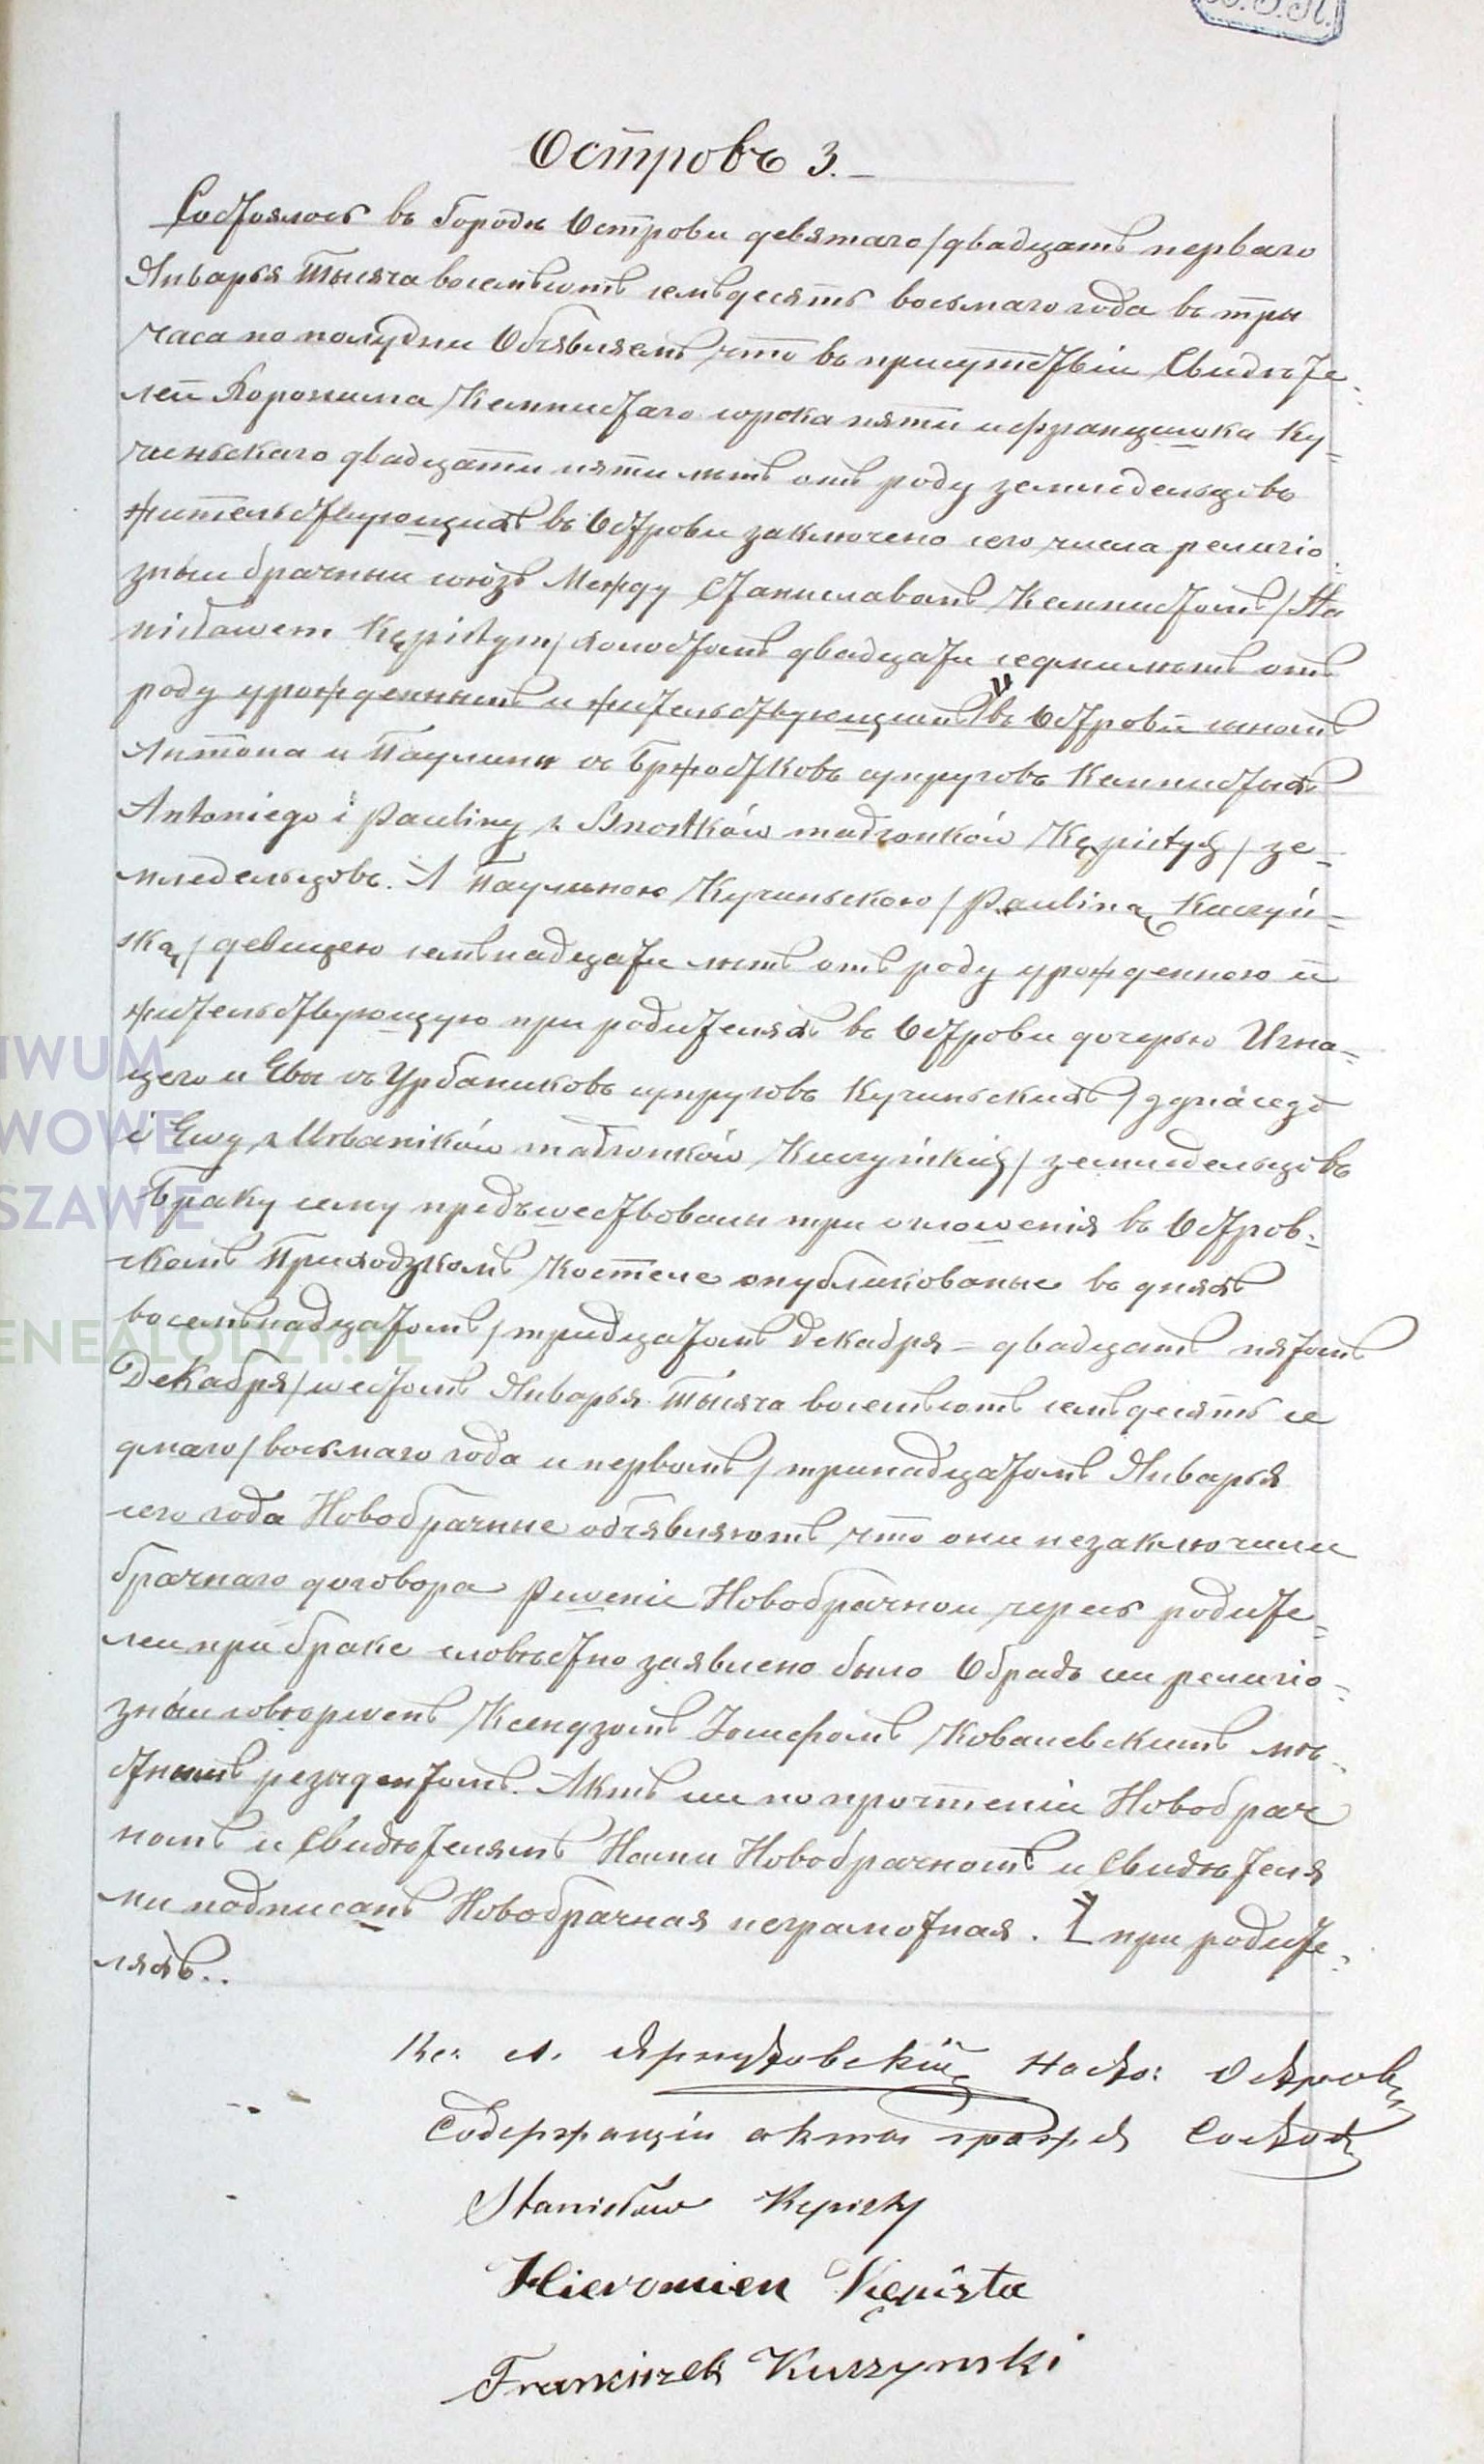 Островъ 3.
Состоялось въ Городѣ Острови девятаго/двадцать перваго
Январья Тысяча восемьсотъ семьдесятъ восьмаго года въ три
часа по полудни Объявляемъ что въ присутствіи Свидѣте-
лей Хоронима Кемпистаго сорока пяти и францишка Ку-
чиньскаго двадцати пяти лѣтъ отъ роду земледельцовъ
жительствующихъ въ Острови заключено сего числа религіо-
зный брачный союзъ Между Станиславомъ Кемпистомъ /Sta
nisławem Kępistym/ холостомъ двадцати седми лѣтъ отъ
роду урожденнымъ и жительствующимъ въ Острови сыномъ
Антона и Паулины съ Бржостковъ супруговъ Кемпистыхъ
Antoniego i Pauliny z Brzostków małżonków Kępistych/ зе-
мледельцовъ. А Паулиною Кучиньскою /Pauliną Kuczyń-
ską/ девицею семьнадцати лѣтъ отъ роду урожденною и
жительствующую при родителяхъ въ Острови дочерью Игна-
цего и Евы съ Урбаниковъ супруговъ Кучиньскихъ
i Ewy z Urbaników małżonków Kuczyńskich/ земледельцовъ
Браку сему предшествовали три оглошенія въ Остров-
скомъ Приходзкомъ Костеле опубликованые въ дняхъ
восемьнадцатомъ/тридцатомъ Декабря = двадцать пятомъ
Декабря/шестомъ Январья Тысяча восемьсотъ семьдесятъ се
дмаго/восьмаго года и первомъ/тринадцатомъ Январья
сего года Новобрачные объявляютъ что они незаключили
брачнаго договора Новобрачной черезъ родите-
лей при браке словѣстно заявлено было Обрадъ сей религіо-
зный совершенъ Ксендзомъ Іосифомъ Ковалевскимъ мѣ-
стнымъ резидентомъ. Актъ сей по прочтеніи Новобрач
номъ и Свидѣтелямъ Нами Новобрачномъ и Свидѣтеля
ми подписанъ Новобрачная неграмотная. при родите-
ляхъ..
Кс: А. Насто: Островъ
Содержащій акты граж: Состоя
Stanisław Kępisty
Hieronien Kępista
Franciszek Kuczynski